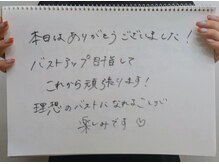 本日はありがとうございました!
バストアップ目指して
これから頑張ります!
理想のバストになれることが
楽しみです♡